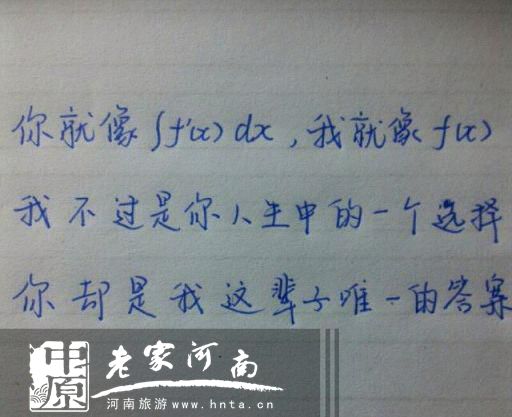 你就像∫f'(x)dx,我就像f(x)
我不过是你人生中的一个选择
你却是我这辈子唯一的答案
中原
老家河南
河南旅游 www.hnta.cn